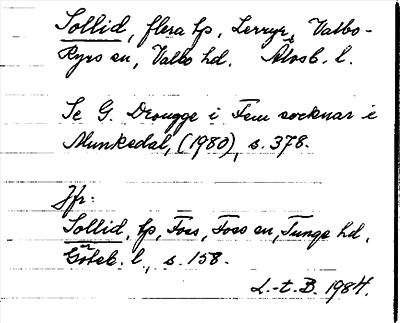 Sollid, flera hp, Lerryr, Valbo-
Ryrs sn, Valbo hd. Älvsb. l.
Se G. Drougge i Fem socknar i
Munkedal, (1980), s. 378.
Jfr:
Sollid, hp, Foss, Foss sn, Tunge hd,
Göteb. l, s. 158.
L.-t. B. 1984.